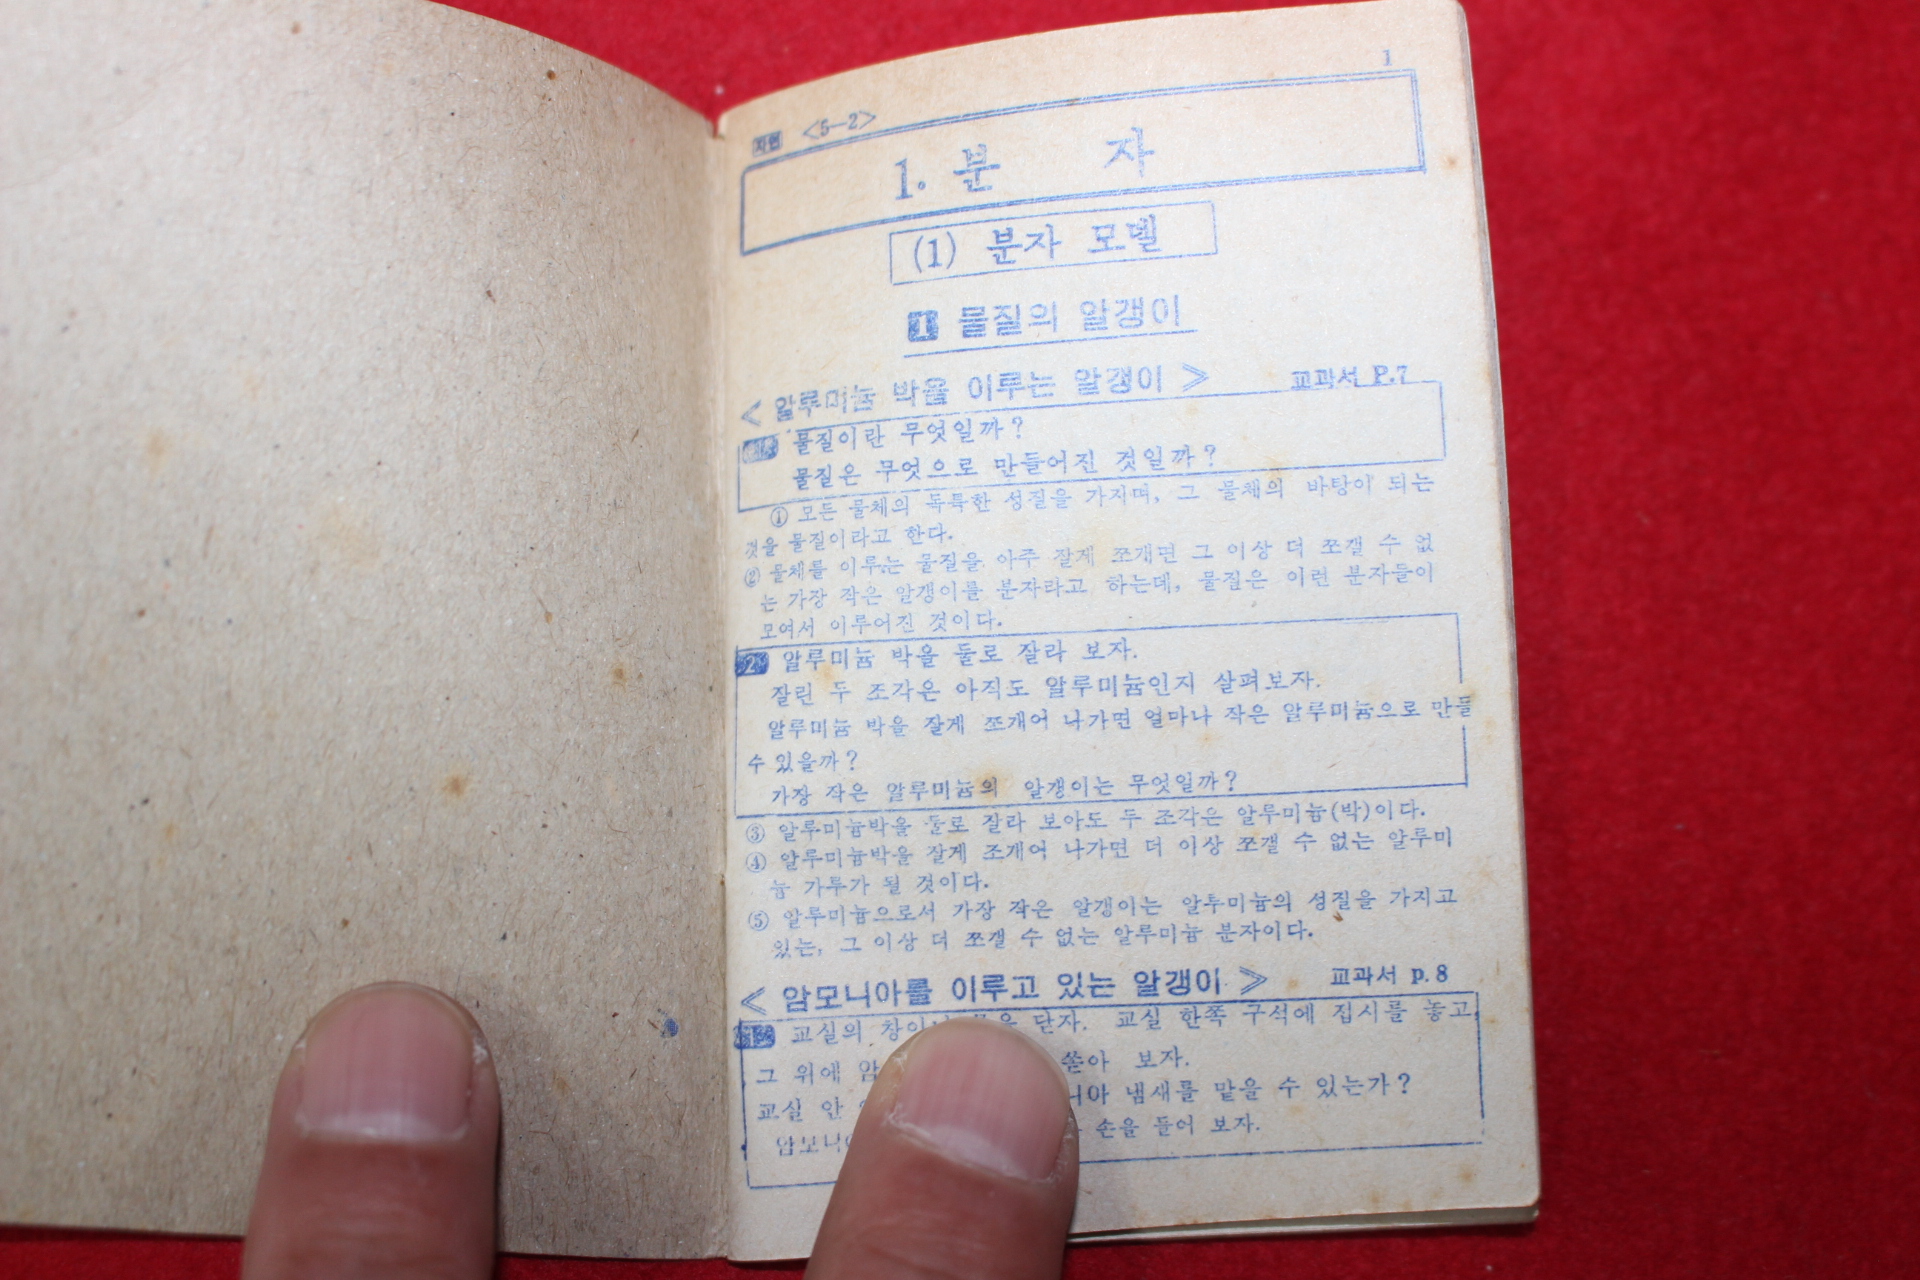 1
자연 <5-2>
1. 분 자
(1) 분자 모델
1 물질의 알갱이
< 알루미늄 박을 이루는 알갱이 > 교과서 P.7
1 물질이란 무엇일까?
물질은 무엇으로 만들어진 것일까?
① 모든 물체의 독특한 성질을 가지며, 그 물체의 바탕이 되는
것을 물질이라고 한다.
② 물체를 이루는 물질을 아주 잘게 쪼개면 그 이상 더 쪼갤 수 없
는 가장 작은 알갱이를 분자라고 하는데, 물질은 이런 분자들이
모여서 이루어진 것이다.
2 알루미늄 박을 둘로 잘라 보자.
잘린 두 조각은 아직도 알루미늄인지 살펴보자.
알루미늄 박을 잘게 쪼개어 나가면 얼마나 작은 알루미늄으로 만들
수 있을까?
가장 작은 알루미늄의 알갱이는 무엇일까?
③ 알루미늄박을 둘로 잘라 보아도 두 조각은 알루미늄(박)이다.
④ 알루미늄박을 잘게 조개어 나가면 더 이상 쪼갤 수 없는 알루미
늄 가루가 될 것이다.
⑤ 알루미늄으로서 가장 작은 알갱이는 알루미늄의 성질을 가지고
있는, 그 이상 더 쪼갤 수 없는 알루미늄 분자이다.
< 암모니아를 이루고 있는 알갱이 > 교과서 p.8
1 교실의 닫자. 교실 한쪽 구석에 접시를 놓고,
그 위에 쏟아 보자.
교실 안 냄새를 맡을 수 있는가?
손을 들어 보자.